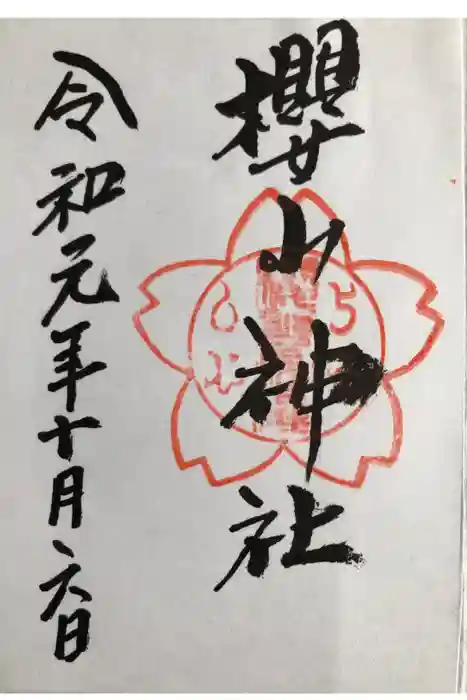 櫻山神社
令和元年十月六日